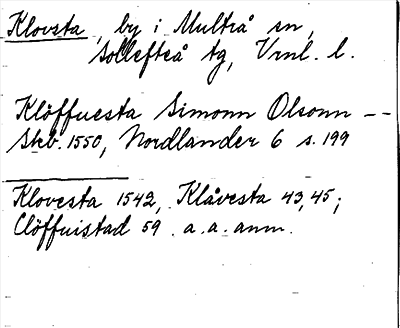 Klovsta, by i Multrå sn,
Sollefteå tg, Vrnl. l.
Klöffuesta Simonn Olsonn --
Skb. 1550, Nordlander 6 s. 199
Klovesta 1542, Klåvesta 43, 45;
Clöffuistad 59. a. a. anm.